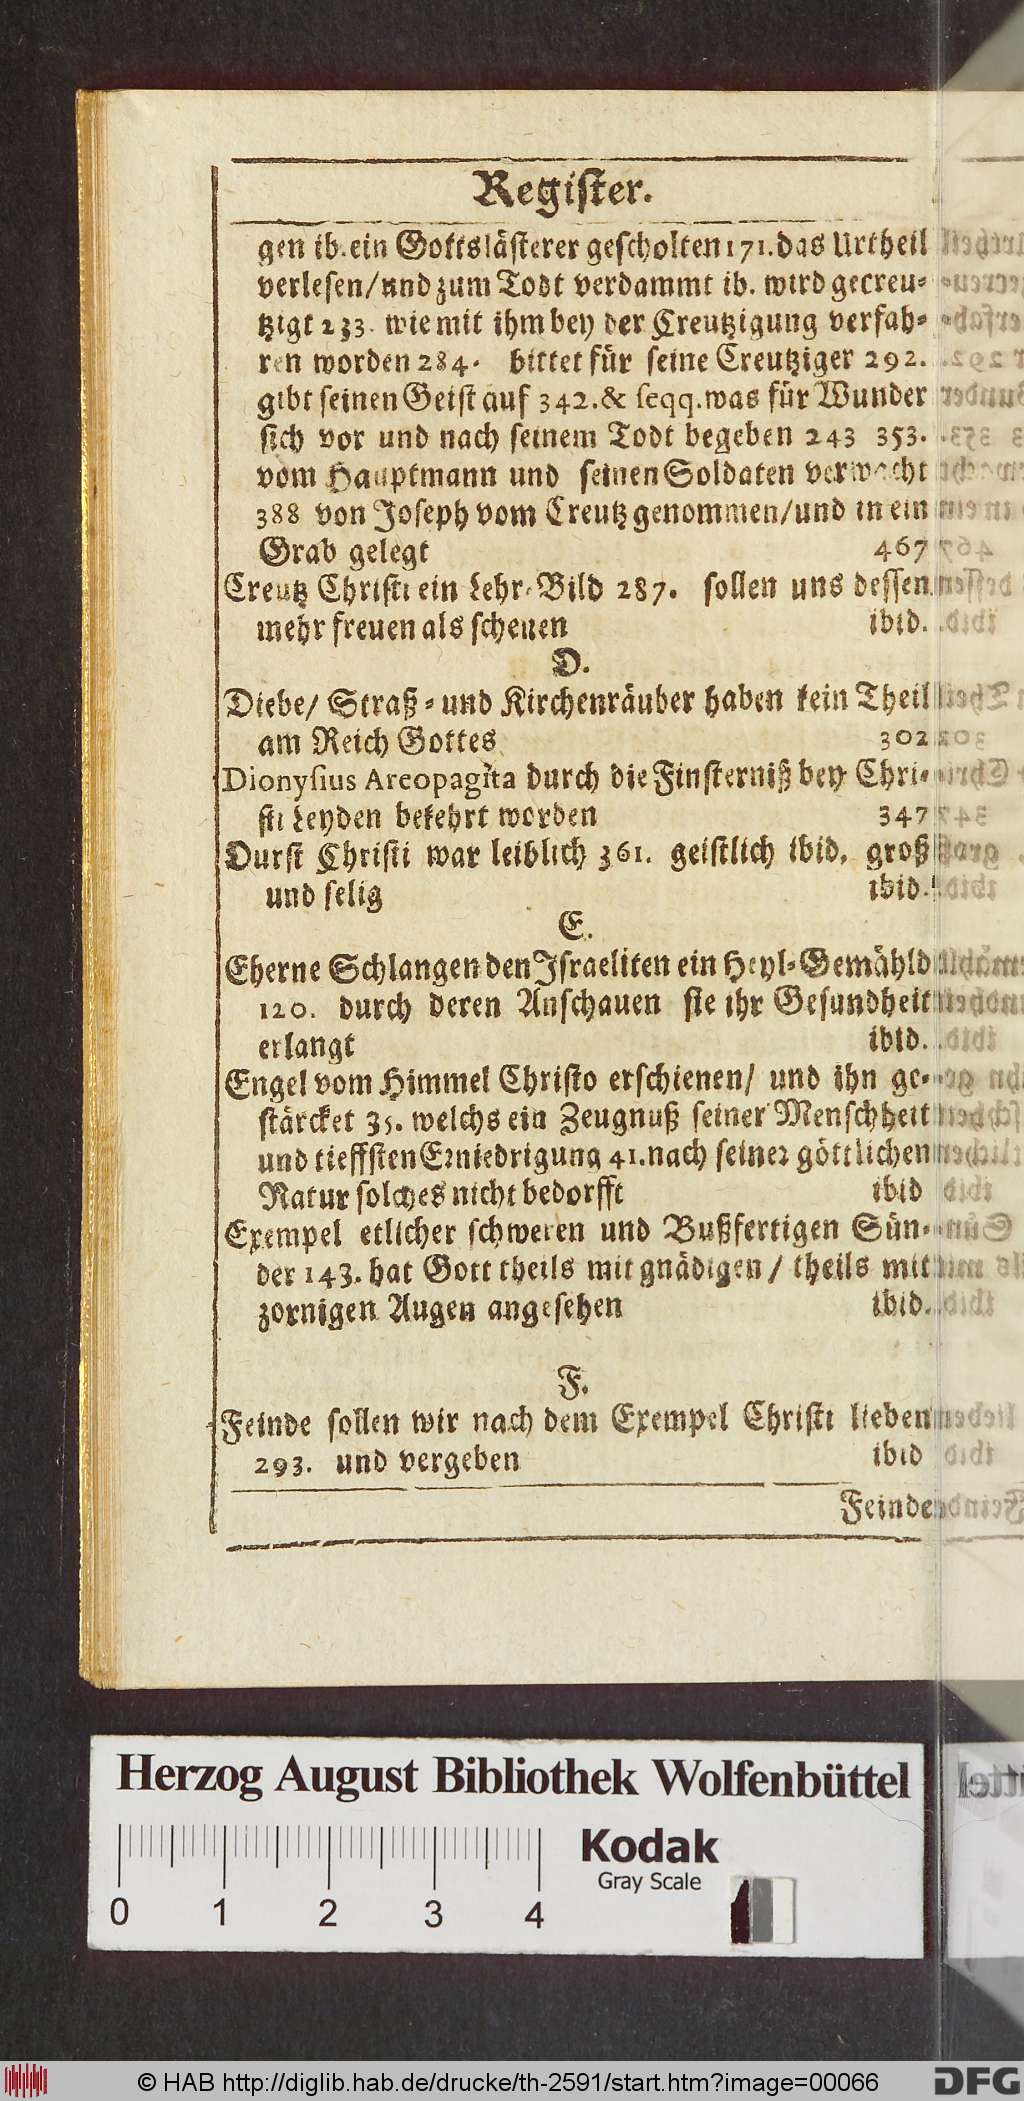 Register.
gen ib. ein Gottslästerer gescholten 171. das Urtheil
verlesen/und zum Todt verdammt ib. wird gecreu-
tzigt 233. wie mit ihm bey der Creutzigung verfah-
ren worden 284. bittet für seine Creutziger 292.
gibt seinen Geist auf 342. & seqq. was für Wunder
sich vor und nach seinem Todt begeben 243 353.
vom Hauptmann und seinen Soldaten verwacht
388 von Joseph vom Creutz genommen/und in ein
Grab gelegt 467
Creutz Christi ein Lehr-Bild 287. sollen uns dessen
mehr freuen als scheuen ibid.
D.
Diebe/ Straß- und Kirchenräuber haben kein Theil
am Reich Gottes 302
Dionysius Areopagita durch die Finsterniß bey Chri-
sti Leyden bekehrt worden 347
Durst Christi war leiblich 361. geistlich ibid. groß
und selig ibid.
E.
Eherne Schlangen den Israeliten ein Heyl-Gemähld
120. durch deren Anschauen sie ihr Gesundheit
erlangt ibid.
Engel vom Himmel Christo erschienen/ und ihn ge-
stärcket 35. welchs ein Zeugnuß seiner Menschheit
und tieffsten Erniedrigung 41. nach seiner göttlichen
Natur solches nicht bedorfft ibid
Exempel etlicher schweren und Bußfertigen Sün-
der 143. hat Gott theils mit gnädigen/ theils mit
zornigen Augen angesehen ibid.
F.
Feinde sollen wir nach dem Exempel Christi lieben
293. und vergeben ibid
Feinde
Herzog August Bibliothek Wolfenbüttel
Kodak
Gray Scale
0 1 2 3 4
© HAB http://diglib.hab.de/drucke/th-2591/start.htm?image=00066
DFG